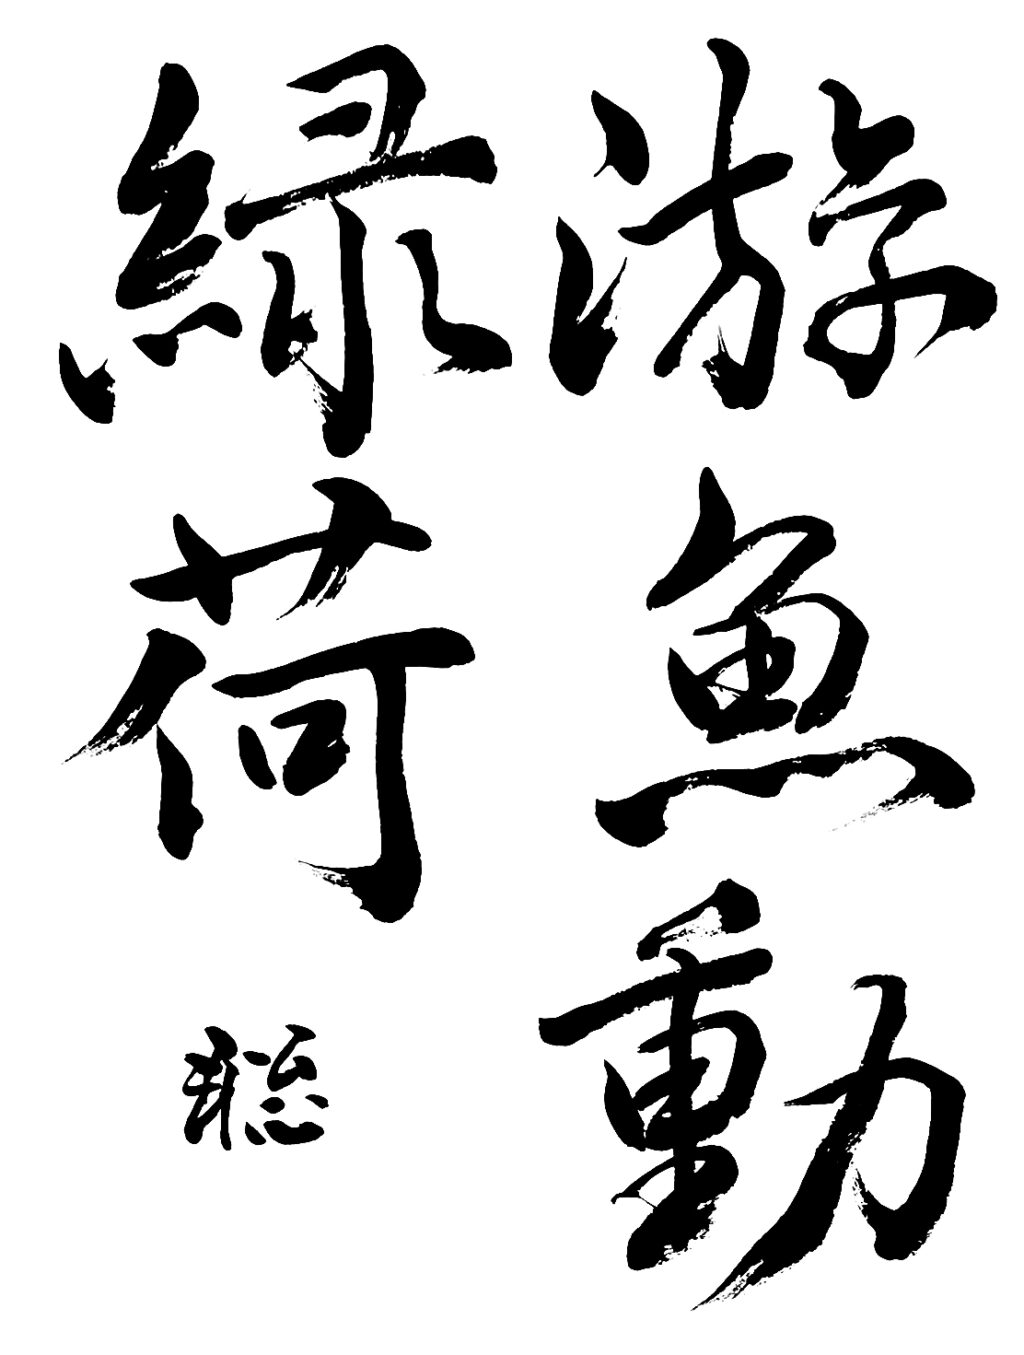 游魚動
緑荷
聡